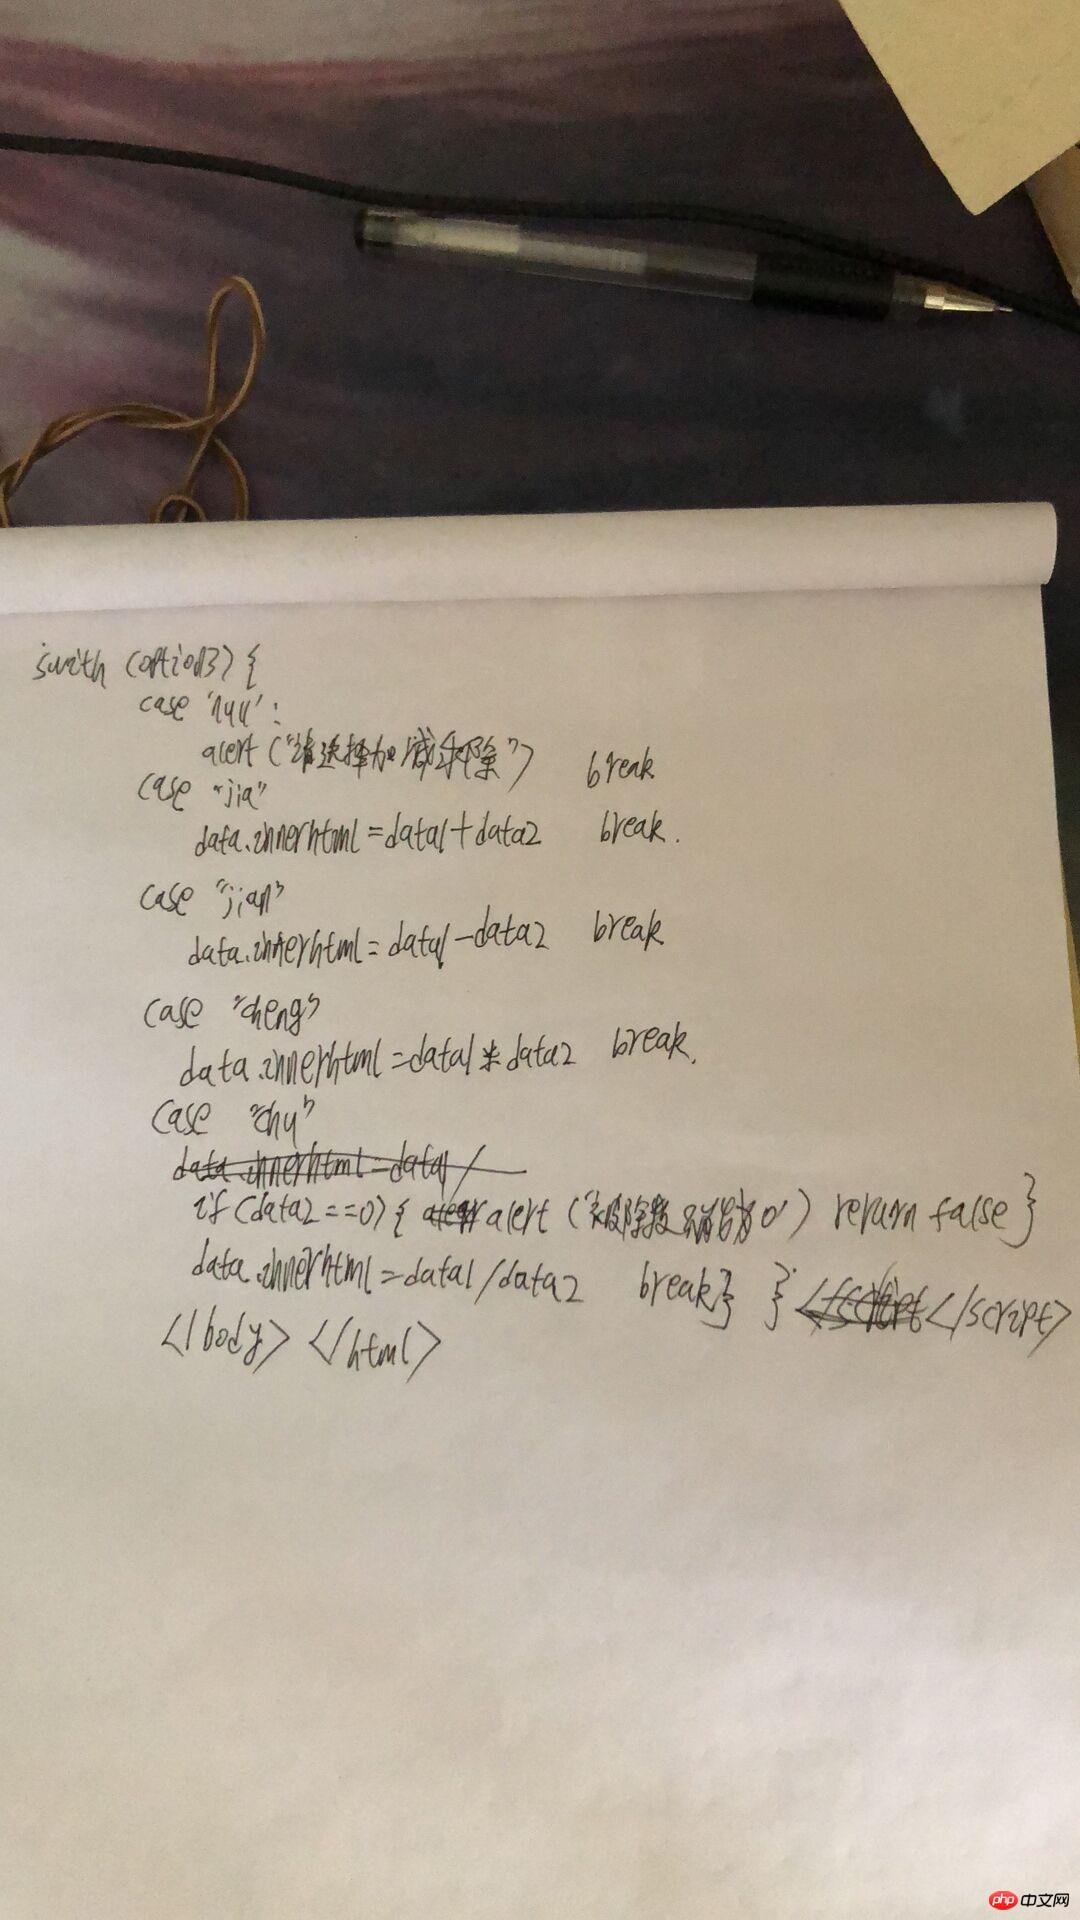 swith (option3) {
case 'null':
alert ("请选择加减乘除") break
case "jia"
data.innerhtml = data1 + data2 break.
case "jian"
data.innerhtml = data1 - data2 break
case "cheng"
data.innerhtml = data1 * data2 break.
case "chu"
data.innerhtml = data1 /
if (data2 == 0) { alert ('被除数不能为0') return false }
data.innerhtml = data1 / data2 break } } </script>
</body> </html>
php 中文网